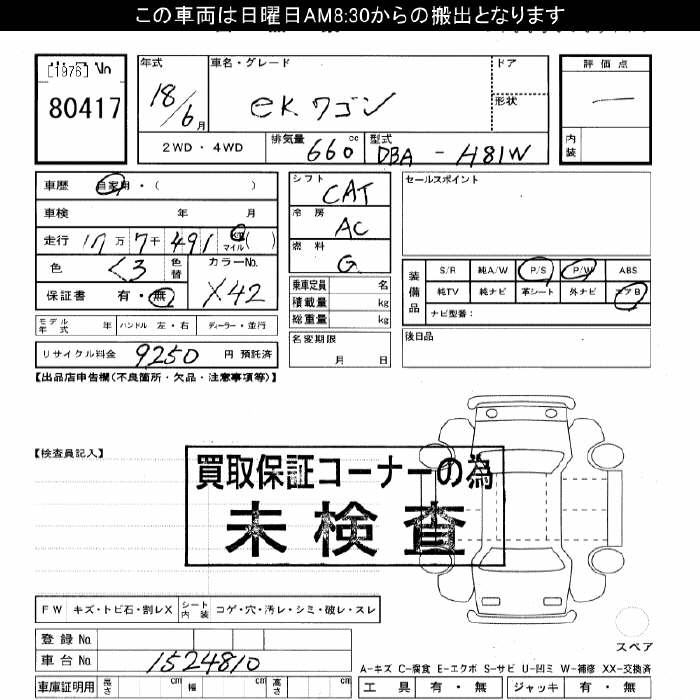 この車両は日曜日AM8:30からの搬出となります
[1976] No
80417
年式 18/6月
車名・グレード eKワゴン
ドア
形状
2WD・4WD
排気量 660cc
型式 DBA-H81W
評価点 —
内装
車歴 自家用・( )
車検 年 月
走行 17万7千491 km マイル ( )
色 くろ 色替 カラーNo. X42
保証書 有・無
モデル年式 年 ハンドル 左・右 ディーラー・並行
リサイクル料金 9250 円 預託済
シフト CAT
冷房 AC
燃料 G
乗車定員 名
積載量 kg
総重量 kg
名変期限 月 日
セールスポイント
装備品 S/R 純A/W P/S P/W ABS
純TV 純ナビ 革シート 外ナビ エアB
ナビ型番:
後日品
【出品店申告欄(不良箇所・欠品・注意事項等)】
【検査員記入】
買取保証コーナーの為
未検査
FW キズ・トビ石・割レX シート内装 コゲ・穴・汚レ・シミ・破レ・スレ
登録No.
車台No. 1524810
車庫証明用 長さ cm 幅 cm 高さ cm
スペア
A-キズ C-腐食 E-エクボ S-サビ U-凹ミ W-補修 XX-交換済
工具 有・無 ジャッキ 有・無